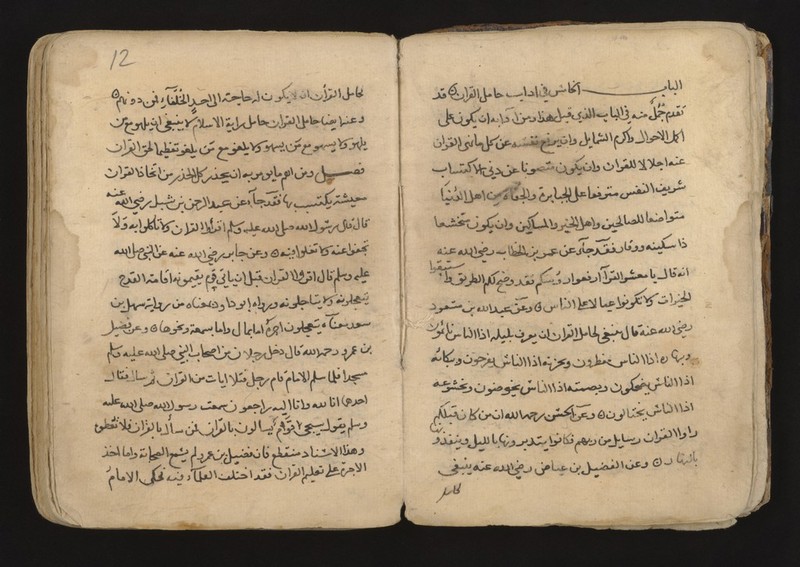 الباب الخامس في اداب حامل القران قد
تقدم جمل منه في الباب الذي قبل هذا ومن آدابه ان يكون على
اكمل الاحوال واكرم الشمايل وان يرفع نفسه عن كل ما نهى القران
عنه اجلالا للقران وان يكون متصونا عن دني الاكتساب
شريف النفس مترفعا على الجبابرة والجفاة من اهل الدنيا
متواضعا للصالحين واهل الخير والمساكين وان يكون متخشعا
ذا سكينه ووقار فقد جاء عن عمر بن الخطاب رضي الله عنه
انه قال يا معشر القرآ ارفعوا روسكم فقد وضح لكم الطريق واستبقوا
الخيرات لا تكونوا عيالا على الناس وعن عبد الله بن مسعود
رضي الله عنه قال ينبغي لحامل القران ان يعرف بليله اذا الناس نائمون
وبنهاره اذا الناس مفطرون وبحزنه اذا الناس يفرحون وببكائه
اذا الناس يضحكون وبصمته اذا الناس يخوضون وبخشوعه
اذا الناس يختالون وعن الحسن رحمه الله ان من كان قبلكم
راوا القران رسايل من ربهم فكانوا يتدبرونها بالليل وينفذونها
بالنهار وعن الفضيل بن عياض رضي الله عنه ينبغي
لحامل
12
لحامل القرأن ان لا يكون له حاجته الى احد الخلفاء فمن دونهم
وعنه ايضا حامل القران حامل راية الاسلام لا ينبغي ان يلهو مع من
يلهو ولا يسهو مع من يسهو ولا يلغو مع من يلغو تعظيما لحق القران
فصل ومن اهم ما يومر به ان يحذر كل الحذر من اتخاذ القران
معيشة يكتسب بها فقد جاء عن عبد الرحمن بن شبل رضي الله عنه
قال قال رسول الله صلى الله عليه وسلم اقرأوا القران ولا تاكلوا به ولا
تجفوا عنه ولا تغلوا فيه وعن جابر رضي الله عنه عن النبي صلى الله
عليه وسلم قال اقروا القران قبل ان ياتي قوم يقيمونه اقامة القدح
يتعجلونه ولا يتاجلونه ورواه ابو داود بمعناه من رواية سهل بن
سعد معناه يتعجلون اجره اما بمال واما بسمعة ونحوها وعن فضيل
بن عمرو رحمه الله قال دخل رجلان من اصحاب النبي صلى الله عليه وسلم
مسجدا فلما سلم الامام قام رجل فتلا ايات من القران ثم سال فقال
احدهما انا لله وانا اليه راجعون سمعت رسول الله صلى الله عليه
وسلم يقول سيجي اقوام يسالون بالقران فمن سأل بالقران فلا تعطوه
وهذا الاسناد منقطع فان فضيل بن عمرو لم يسمع الصحابة واما اخذ
الاجرة على تعليم القران فقد اختلف العلماء فيه فحكى الامام